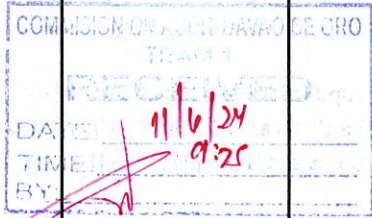 COMMISION ON AUDIT DAVAO DE ORO
TEAM
RECEIVED
DATE: 11/6/24
TIME: 9:25
BY: